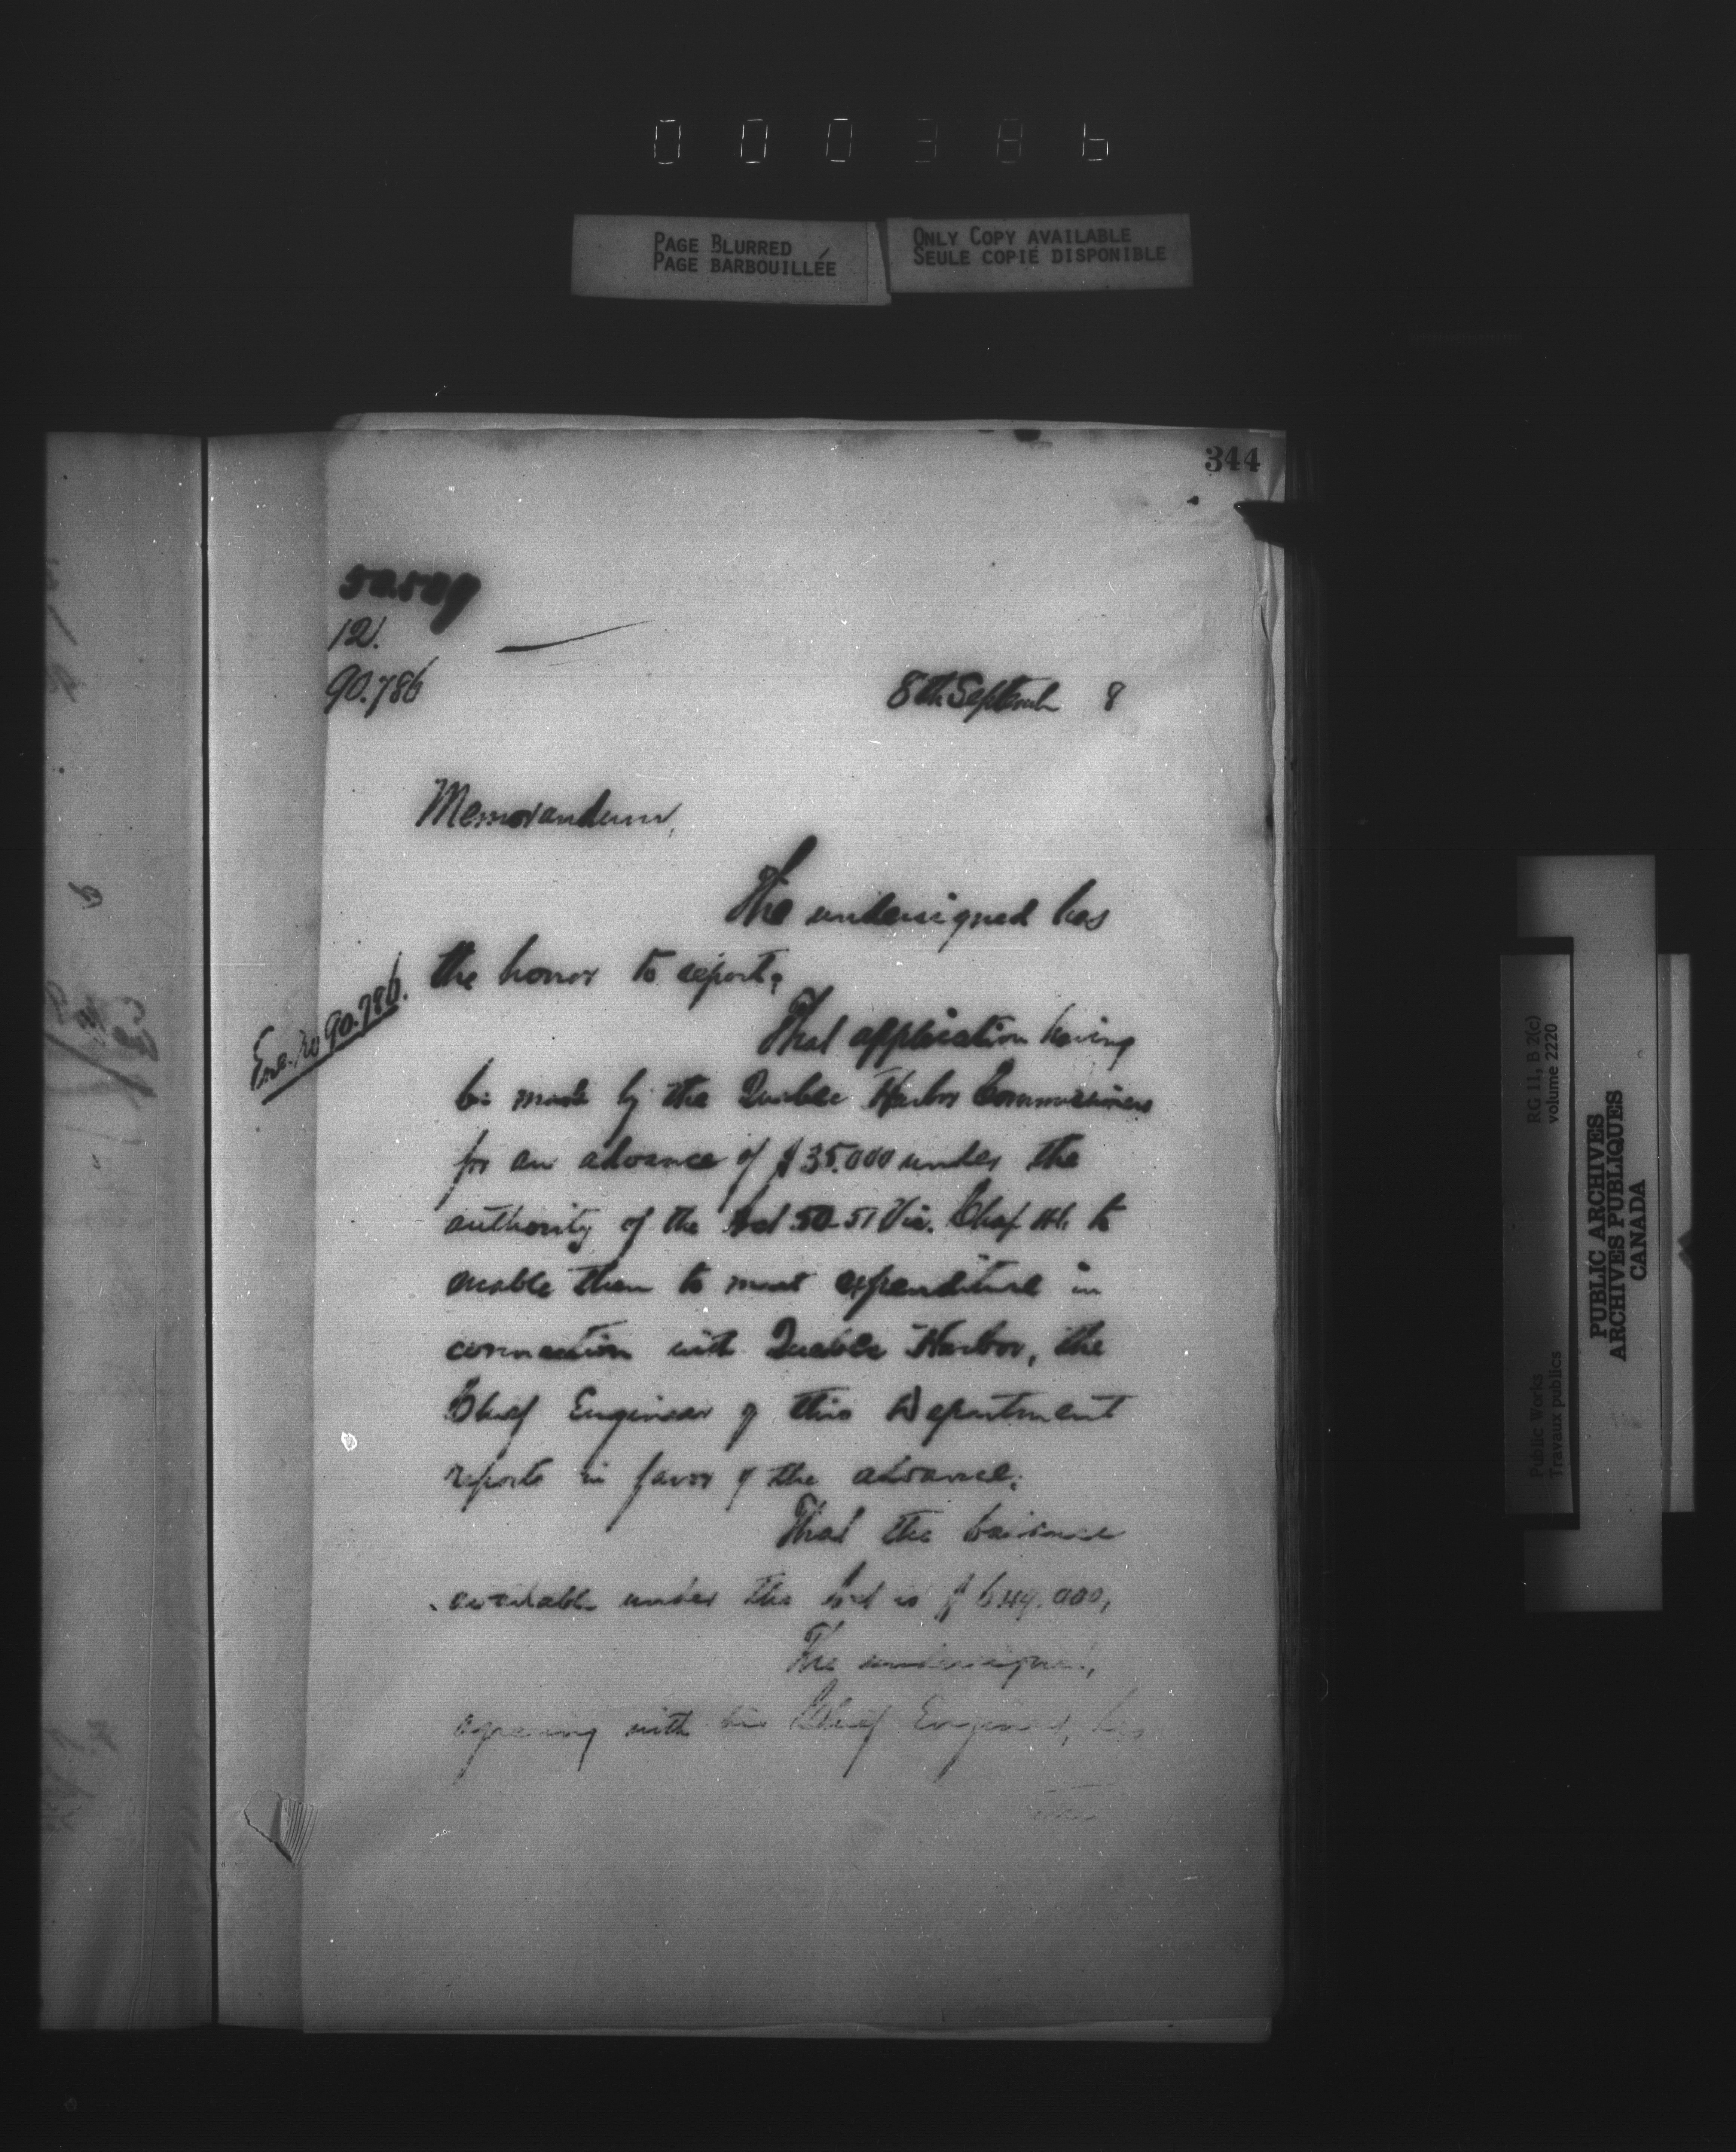 000386
PAGE BLURRED
PAGE BARBOUILLÉE
ONLY COPY AVAILABLE
SEULE COPIE DISPONIBLE
344
50.509
12.
90.786
8th September 8
Memorandum,
The undersigned has
the honor to report:
Enc. no 90.786.
That application having
be made by the Quebec Harbor Commissioners
for an advance of $35.000 under the
authority of the Act 50-51 Vic. Chap 41. to
enable them to meet expenditure in
connection with Quebec Harbor, the
Chief Engineer of this Department
reports in favor of the advance;
That the balance
available under the Act is $
The undersigned,
agreeing with his Chief Engineer, has
RG 11, B 2(c)
volume 2220
Public Works
Travaux publics
PUBLIC ARCHIVES
ARCHIVES PUBLIQUES
CANADA